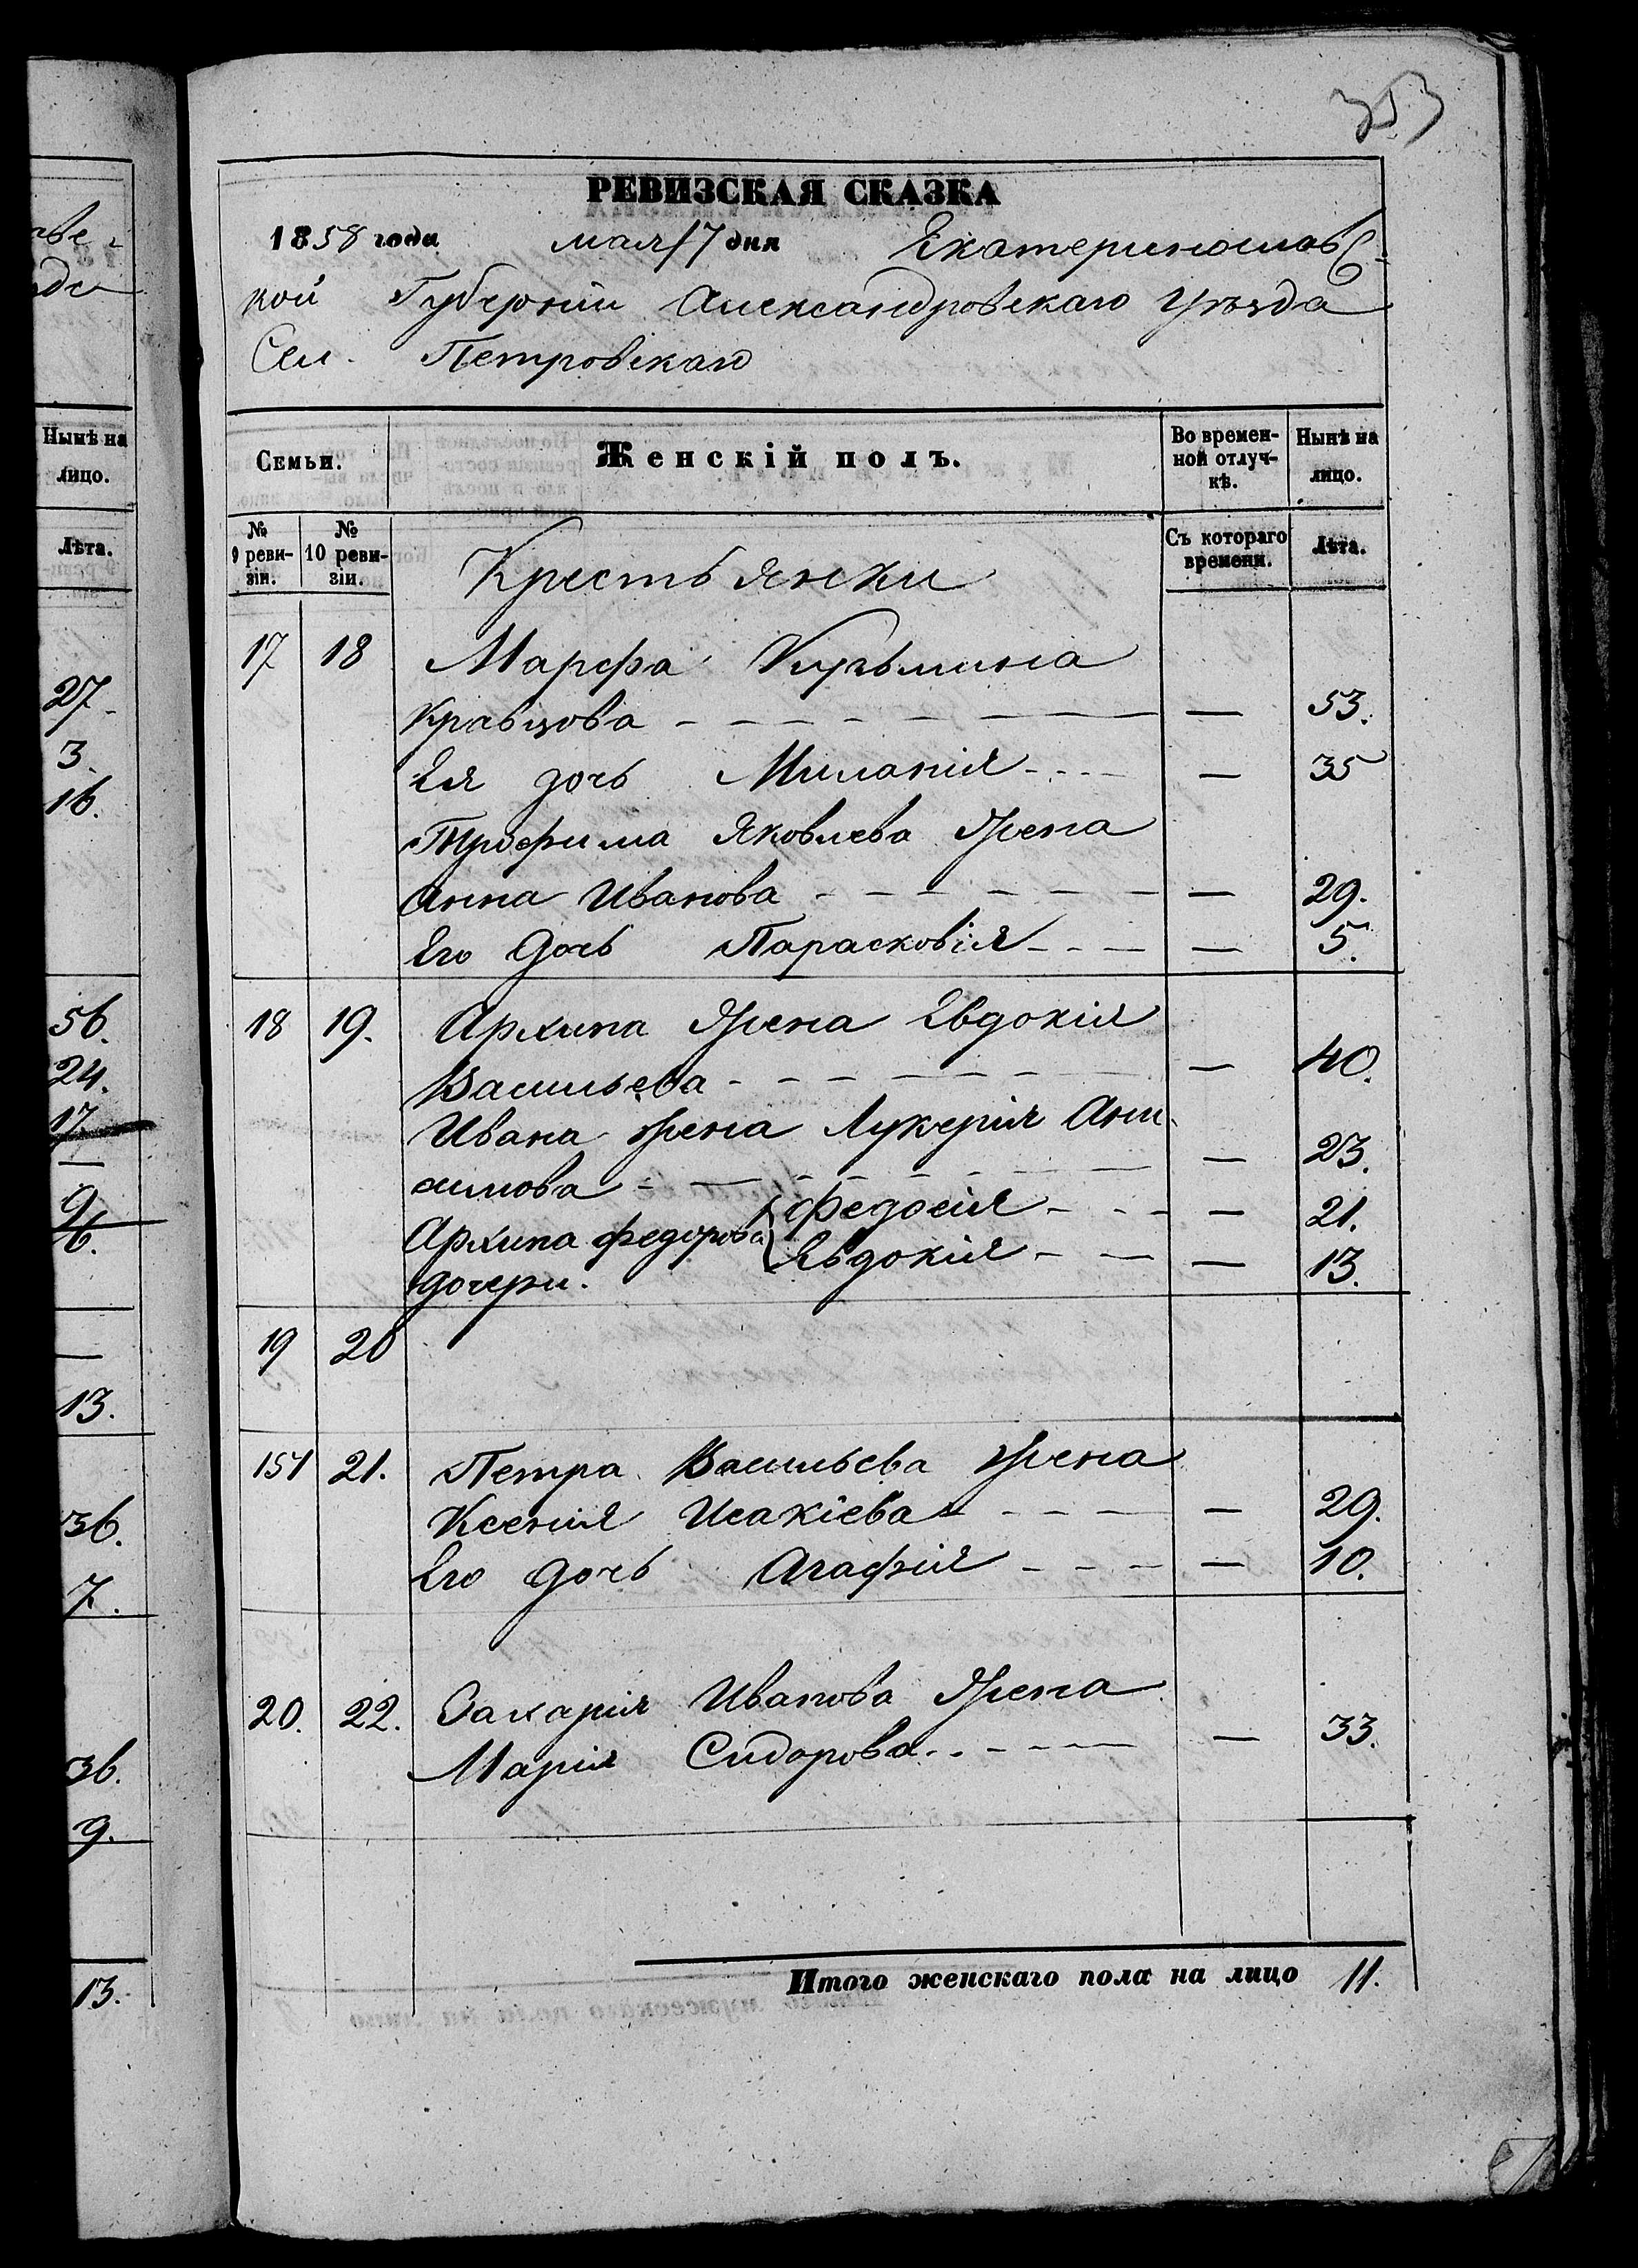 353
РЕВИЗСКАЯ СКАЗКА
1858 года мая 17 дня Екатеринославс-
кой Губерніи Александровскаго Уѣзда
Сел. Петровскаго
Семьи. Женскій полъ. Во времен-ной отлуч-кѣ. Нынѣ на лицо.
№ 9 реви-зіи. № 10 реви-зіи. Крестьянки Съ котораго времени. Лѣта.
17 18 Марфа Кузьмина
Кравцова — 53.
Ея дочь Миланія — 35
Трофима Яковлева Жена
Анна Иванова — 29.
Его дочь Парасковія — 5.
18 19. Архипа Жена Евдокія
Васильева — 40.
Ивана жена Лукерія Они-
симова — 23.
Архипа Федорова { Федосія — 21.
дочери. Евдокія — 13.
19 20
151 21. Петра Васильева жена
Ксенія Исакіева — 29.
Его дочь Агафія — 10.
20. 22. Захарія Иванова Жена
Марія Сидорова — 33.
Итого женскаго пола на лицо 11.
Нынѣ на
лицо.
Лѣта.
27
3
16.
56.
24.
17
—
9
—
13.
36.
7.
36.
9.
13.